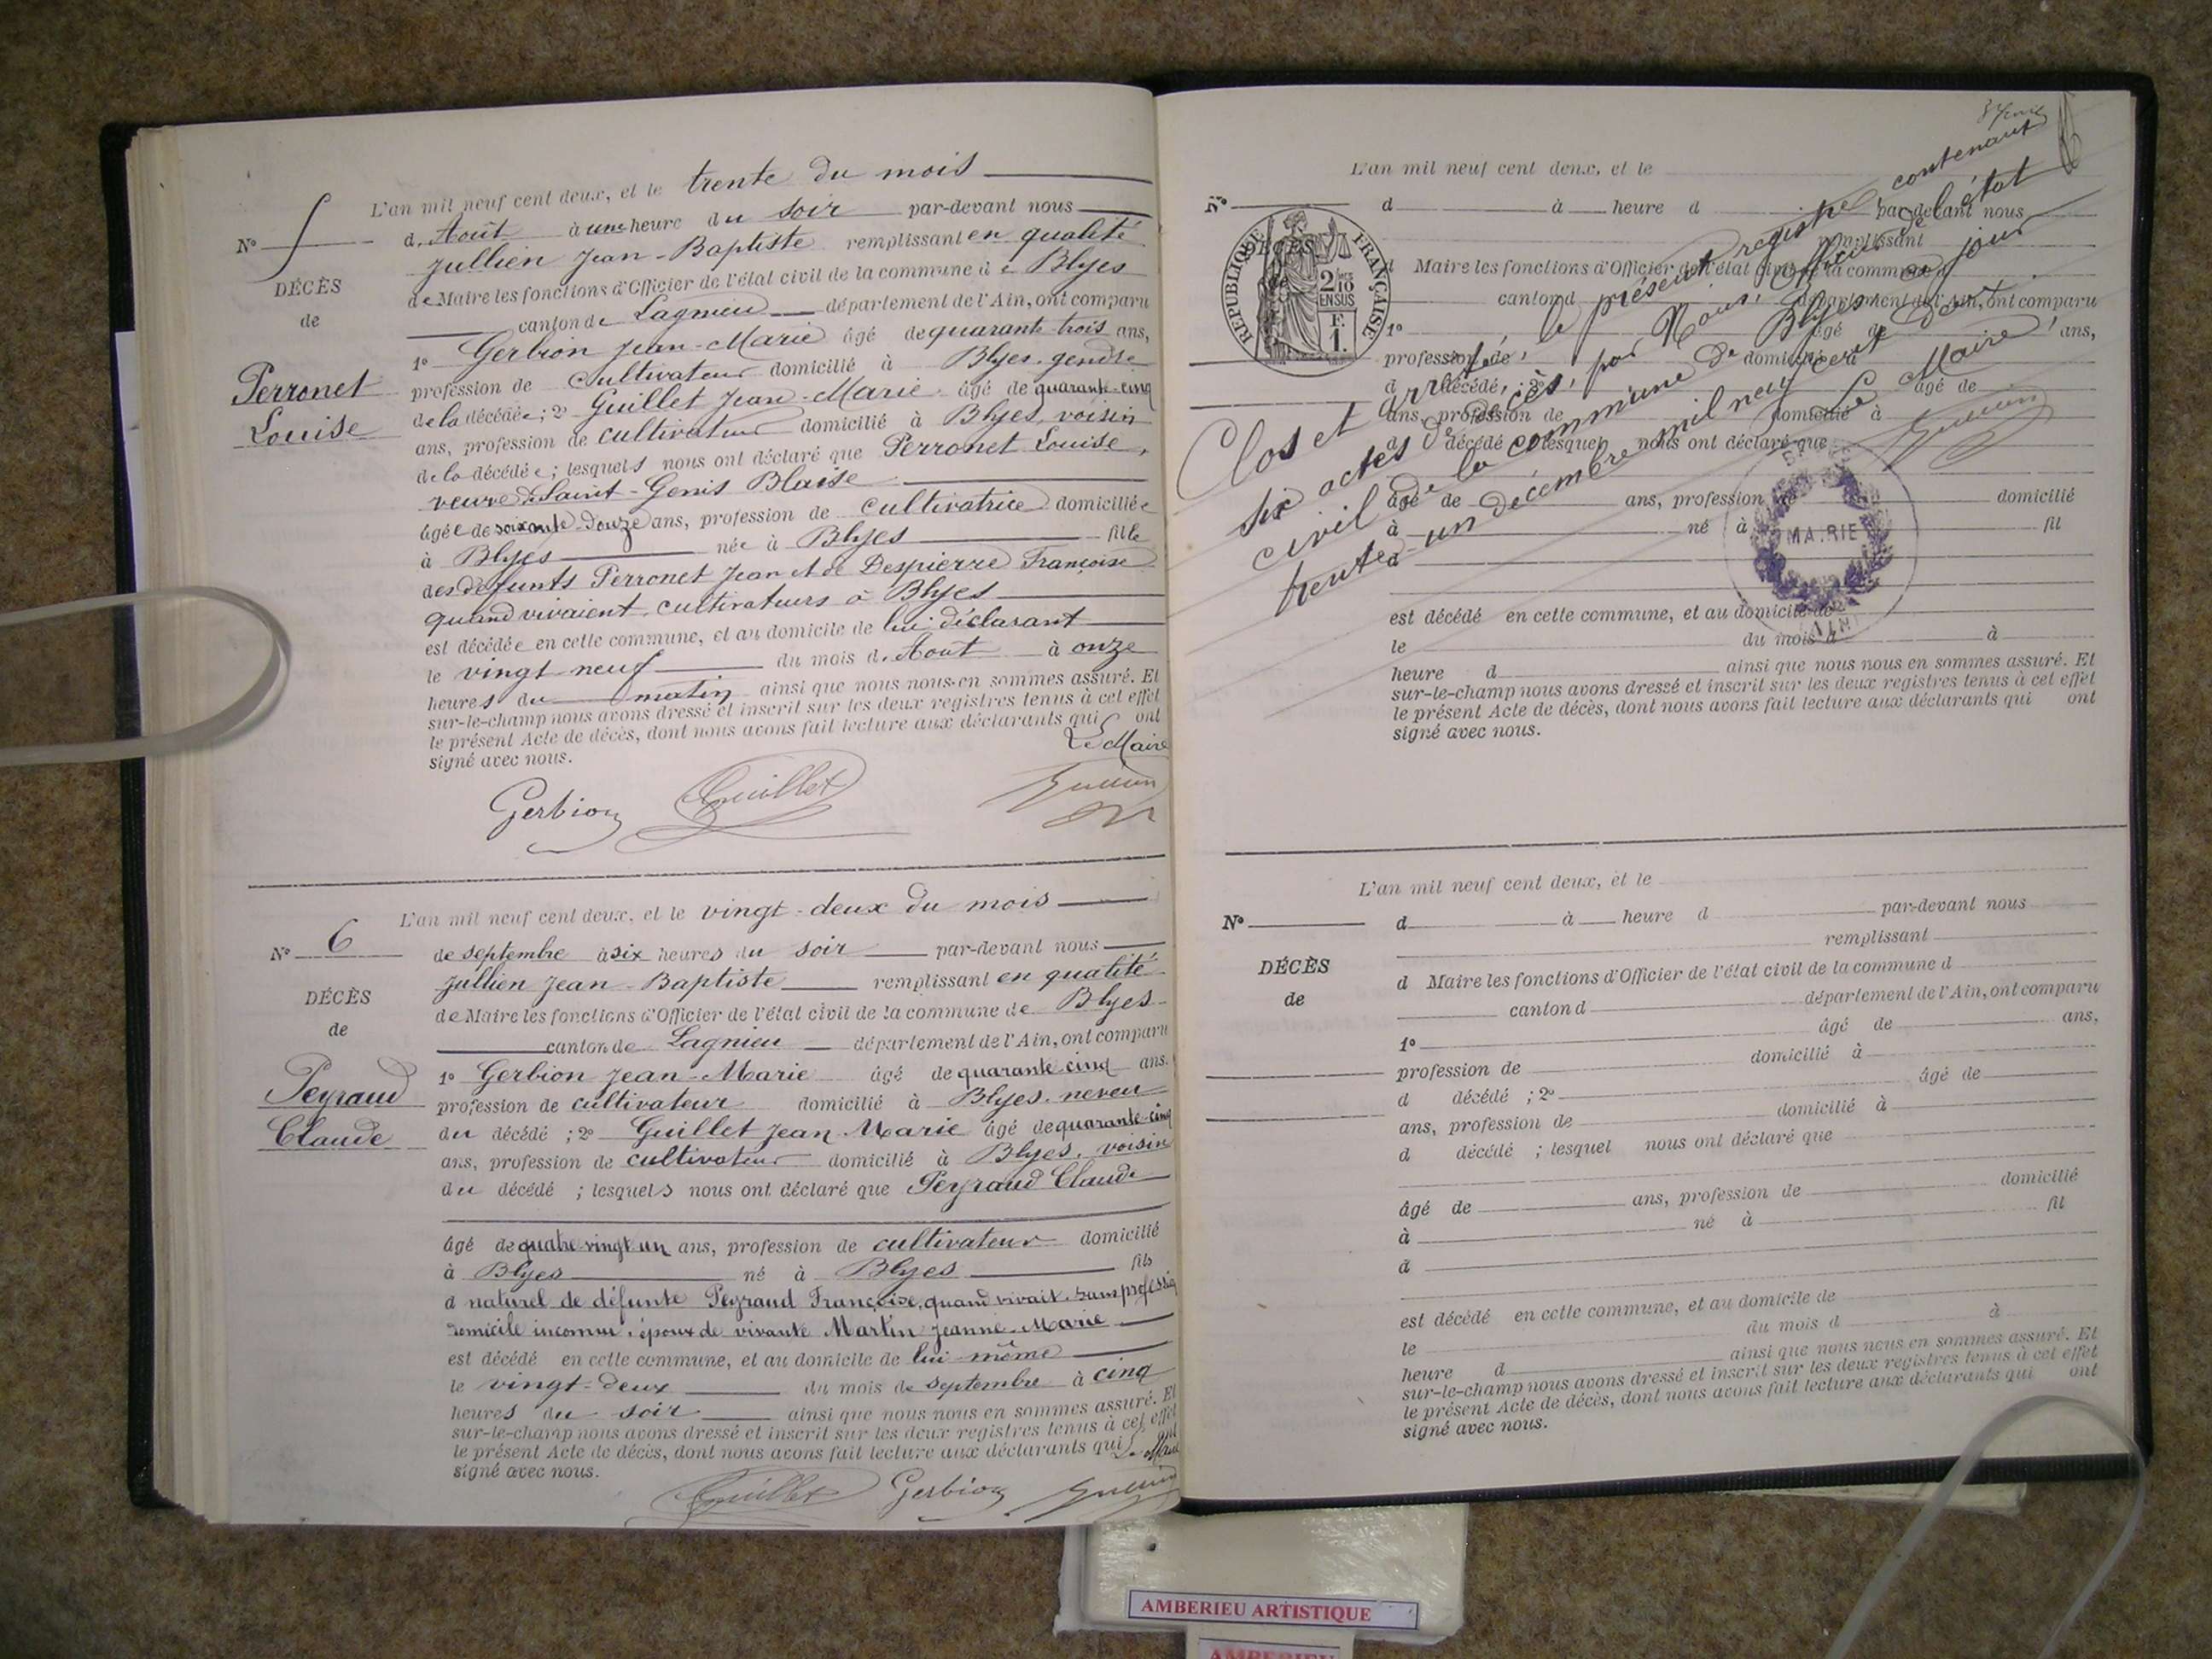 L'an mil neuf cent deux, et le trente du mois
N° 5
d'Août à une heure du soir par-devant nous
Jullien Jean-Baptiste remplissant en qualité
DÉCÈS
de
Perronet
Louise
de Maire les fonctions d'Officier de l'état civil de la commune de Blyes
canton de Lagnieu département de l'Ain, ont comparu
1° Gerbion Jean-Marie âgé de quarante-trois ans,
profession de cultivateur domicilié à Blyes, gendre
de la décédée ; 2° Guillet Jean-Marie âgé de quarante-cinq
ans, profession de cultivateur domicilié à Blyes, voisin
de la décédée ; lesquels nous ont déclaré que Perronet Louise,
veuve de Saint-Genis Blaise
âgée de soixante-douze ans, profession de cultivatrice domiciliée
à Blyes née à Blyes fille
des défunts Perronet Jean et de Despierre Françoise
quand vivaient cultivateurs à Blyes
est décédée en cette commune, et au domicile de lui déclarant
le vingt neuf du mois d'Aout à onze
heures du matin ainsi que nous nous en sommes assuré. Et
sur-le-champ nous avons dressé et inscrit sur les deux registres tenus à cet effet
le présent Acte de décès, dont nous avons fait lecture aux déclarants qui ont
signé avec nous.
Le Maire
Gerbion Guillet Jullien
L'an mil neuf cent deux, et le vingt-deux du mois
N° 6
de septembre à six heures du soir par-devant nous
Jullien Jean-Baptiste remplissant en qualité
DÉCÈS
de
Peyraud
Claude
de Maire les fonctions d'Officier de l'état civil de la commune de Blyes
canton de Lagnieu département de l'Ain, ont comparu
1° Gerbion Jean-Marie âgé de quarante-cinq ans.
profession de cultivateur domicilié à Blyes, neveu
du décédé ; 2° Guillet Jean Marie âgé de quarante-cinq
ans, profession de cultivateur domicilié à Blyes, voisin
du décédé ; lesquels nous ont déclaré que Peyraud Claude
âgé de quatre vingt un ans, profession de cultivateur domicilié
à Blyes né à Blyes fils
d naturel de défunte Peyraud Françoise, quand vivait sans profession
domicile inconnu, époux de vivante Martin Jeanne-Marie
est décédé en cette commune, et au domicile de lui-même
le vingt-deux du mois de septembre à cinq
heures du soir ainsi que nous nous en sommes assuré. Et
sur-le-champ nous avons dressé et inscrit sur les deux registres tenus à cet effet
le présent Acte de décès, dont nous avons fait lecture aux déclarants qui ont
signé avec nous.
Le Maire
Guillet Gerbion Jullien
L'an mil neuf cent deux, et le
N°
d à heure d par-devant nous
remplissant
DÉCÈS
de
RÉPUBLIQUE FRANÇAISE
2/10 EN SUS
F.
1.
d Maire les fonctions d'Officier de l'état civil de la commune d
canton d département de l'Ain, ont comparu
1° âgé de ans,
profession de domicilié à
d décédé ; 2° âgé de
ans, profession de domicilié à
d décédé ; lesquel nous ont déclaré que
âgé de ans, profession de domicilié
à né à fil
d
est décédé en cette commune, et au domicile de
le du mois d à
heure d ainsi que nous nous en sommes assuré. Et
sur-le-champ nous avons dressé et inscrit sur les deux registres tenus à cet effet
le présent Acte de décès, dont nous avons fait lecture aux déclarants qui ont
signé avec nous.
Clos et arrêté, le présent registre contenant
six actes de décès, par Nous, Officier de l'état
civil de la commune de Blyes ce jour
trente-un décembre mil neuf cent deux
Le Maire
Jullien
MAIRIE
(AIN)
L'an mil neuf cent deux, et le
N°
d à heure d par-devant nous
remplissant
DÉCÈS
de
d Maire les fonctions d'Officier de l'état civil de la commune d
canton d département de l'Ain, ont comparu
1° âgé de ans,
profession de domicilié à
d décédé ; 2° âgé de
ans, profession de domicilié à
d décédé ; lesquel nous ont déclaré que
âgé de ans, profession de domicilié
à né à fil
d
est décédé en cette commune, et au domicile de
le du mois d à
heure d ainsi que nous nous en sommes assuré. Et
sur-le-champ nous avons dressé et inscrit sur les deux registres tenus à cet effet
le présent Acte de décès, dont nous avons fait lecture aux déclarants qui ont
signé avec nous.
AMBERIEU ARTISTIQUE
AMBERIEU